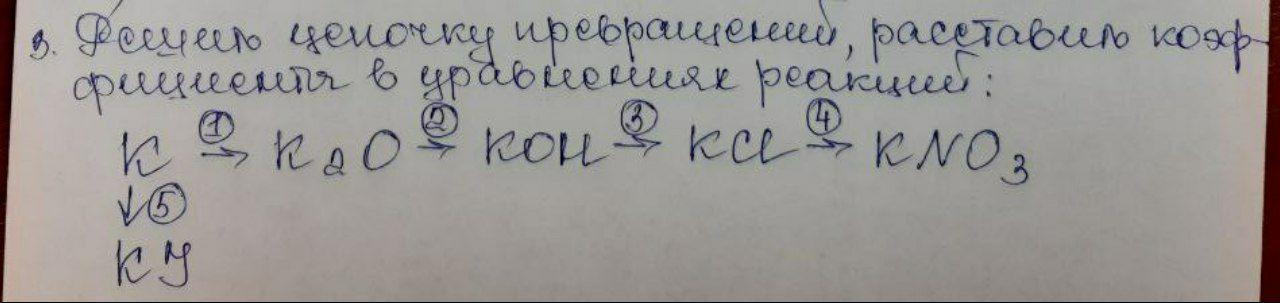 3. Решить цепочку превращений, расставить коэф-
фициенты в уравнениях реакций:
K ①→ K₂O ②→ KOH ③→ KCl ④→ KNO₃
↓⑤
KY